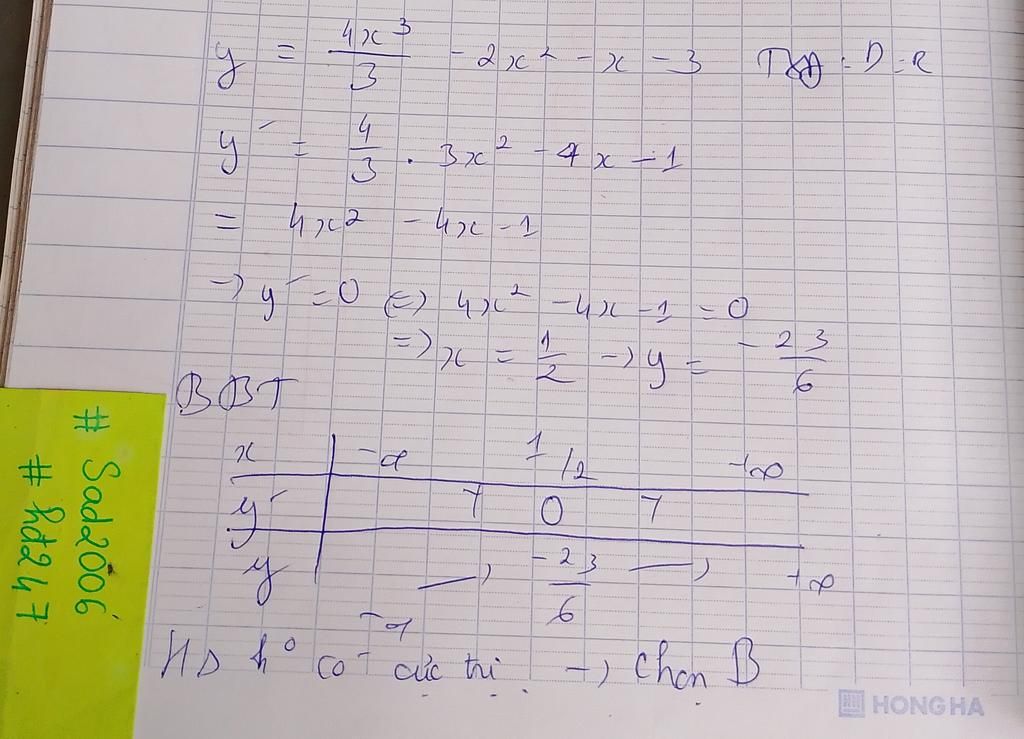 y = 4x³/3 - 2x² - x - 3 TXĐ: D = R
y' = 4/3 . 3x² - 4x - 1
= 4x² - 4x - 1
→ y' = 0 (=) 4x² - 4x - 1 = 0
=> x = 1/2 → y = -23/6
BBT
x -∞ 1/2 +∞
y' + 0 +
y -∞ → -23/6 → +∞
HS ko có cực trị → Chọn B
# Sad2006
# hd247
HONG HA